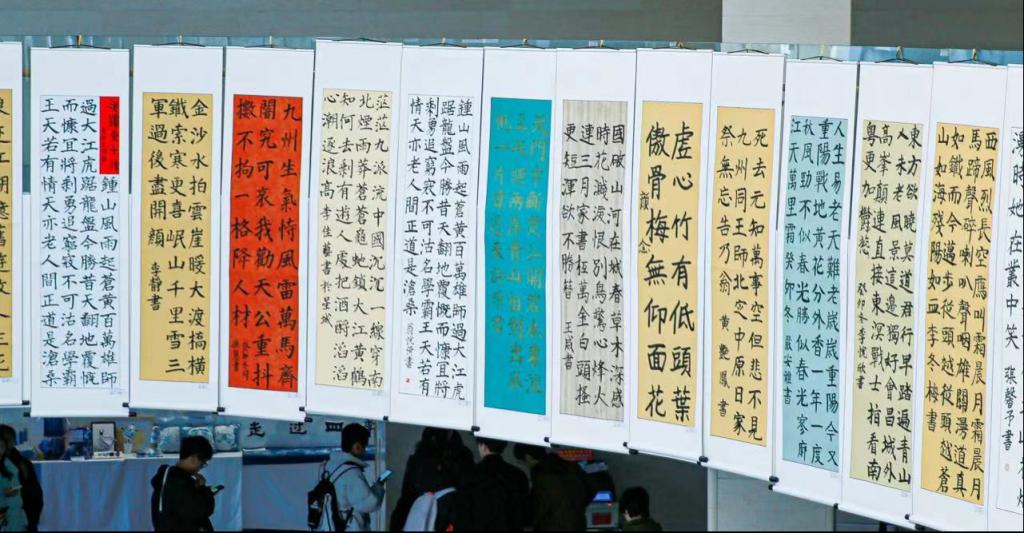 鍾山風雨起蒼黃百萬雄師
過大江虎踞龍盤今勝昔天翻地覆慨
而慷宜將剩勇追窮寇不可沽名學霸
王天若有情天亦老人間正道是滄桑
金沙水拍雲崖暖大渡橋橫
鐵索寒更喜岷山千里雪三
軍過後盡開顏 李靜書
九州生氣恃風雷萬馬齊
闇究可哀我勸天公重抖
擻不拘一格降人材
茫茫九派流中國沉沉一線穿南
北煙雨莽蒼蒼龜蛇鎖大江黃鶴
知何去剩有遊人處把酒酹滔滔
心潮逐浪高 李佳藝書於星城
鍾山風雨起蒼黃百萬雄師過大江虎
踞龍盤今勝昔天翻地覆慨而慷宜將
剩勇追窮寇不可沽名學霸王天若有
情天亦老人間正道是滄桑
天門中斷楚江開碧水東流
至此迴兩岸青山相對出孤
帆一片日邊來
國破山河在城春草木深感
時花濺淚恨別鳥驚心烽火
連三月家書抵萬金白頭搔
更短渾欲不勝簪 王咸書
虛心竹有低頭葉
傲骨梅無仰面花
死去元知萬事空但悲不見
九州同王師北定中原日家
祭無忘告乃翁 黃艷鳳書
人生易老天難老歲歲重陽今又
重陽戰地黃花分外香一年一度
秋風勁不似春光勝似春光寥廓
江天萬里霜
東方欲曉莫道君行早踏遍青山
人未老風景這邊獨好會昌城外
高峯顛連直接東溟戰士指看南
粵更加鬱葱
西風烈長空雁叫霜晨月霜晨月
馬蹄聲碎喇叭聲咽雄關漫道真
如鐵而今邁步從頭越從頭越蒼
山如海殘陽如血 李冬梅書
漫時她在叢中笑 張馨予書
走过四